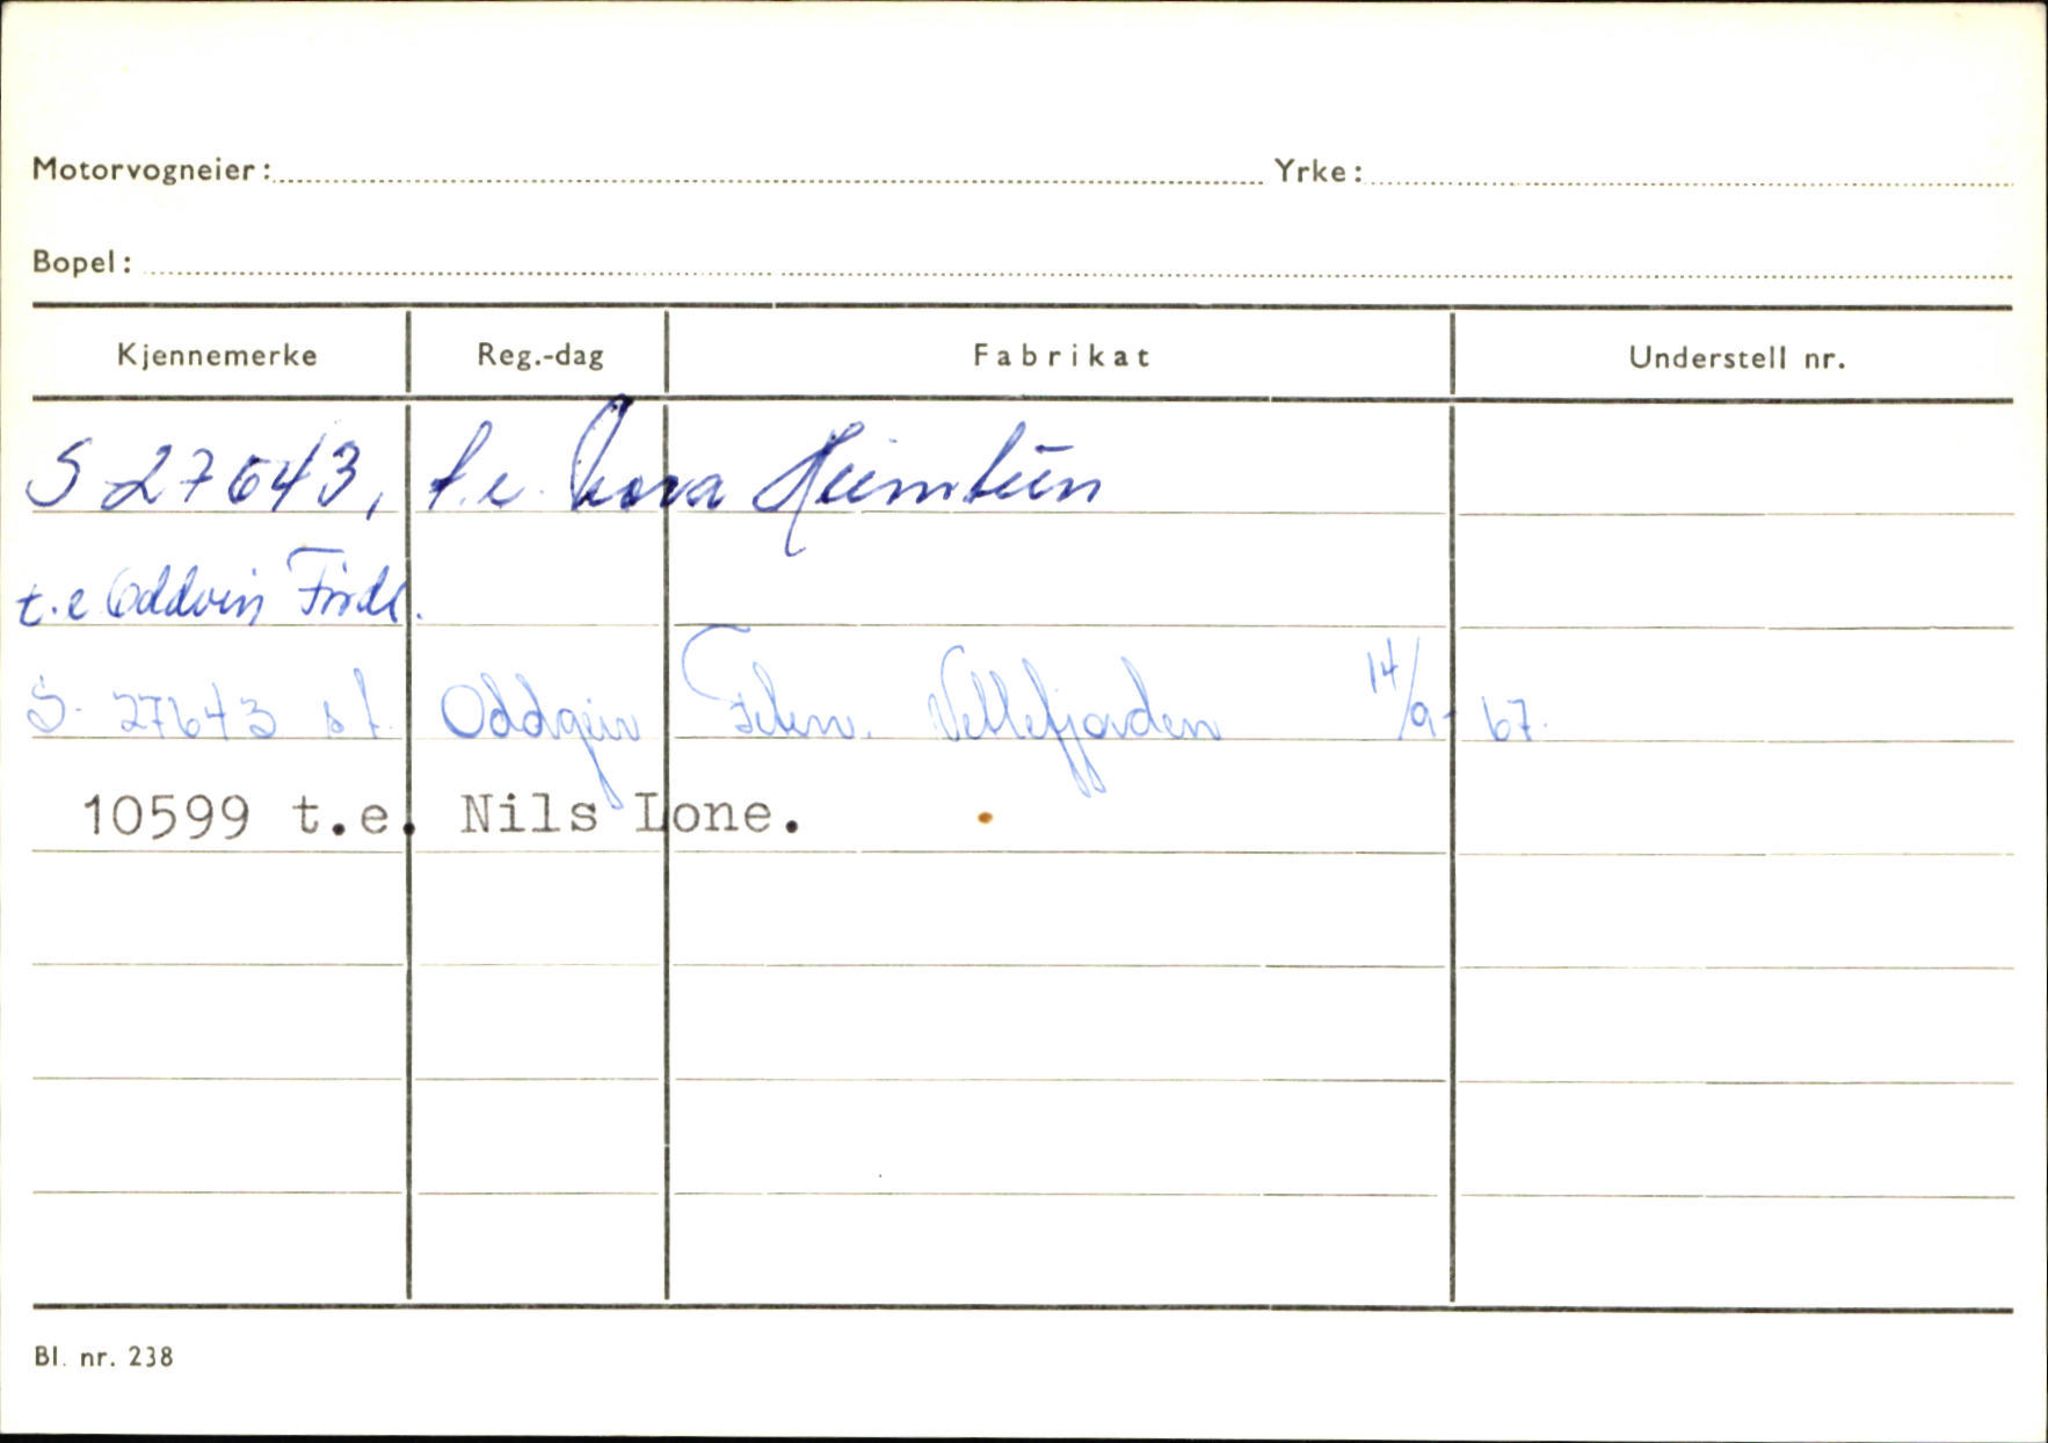 Motorvogneier: Yrke:
Bopel:
Kjennemerke Reg.-dag Fabrikat Understell nr.
S 27643, t.e. Nora Heimtun
t.e Oddvin Førde.
S- 27643 s.f. Oddgeir Vetlefjorden 14/9- 67.
10599 t.e. Nils Lone.
Bl. nr. 238